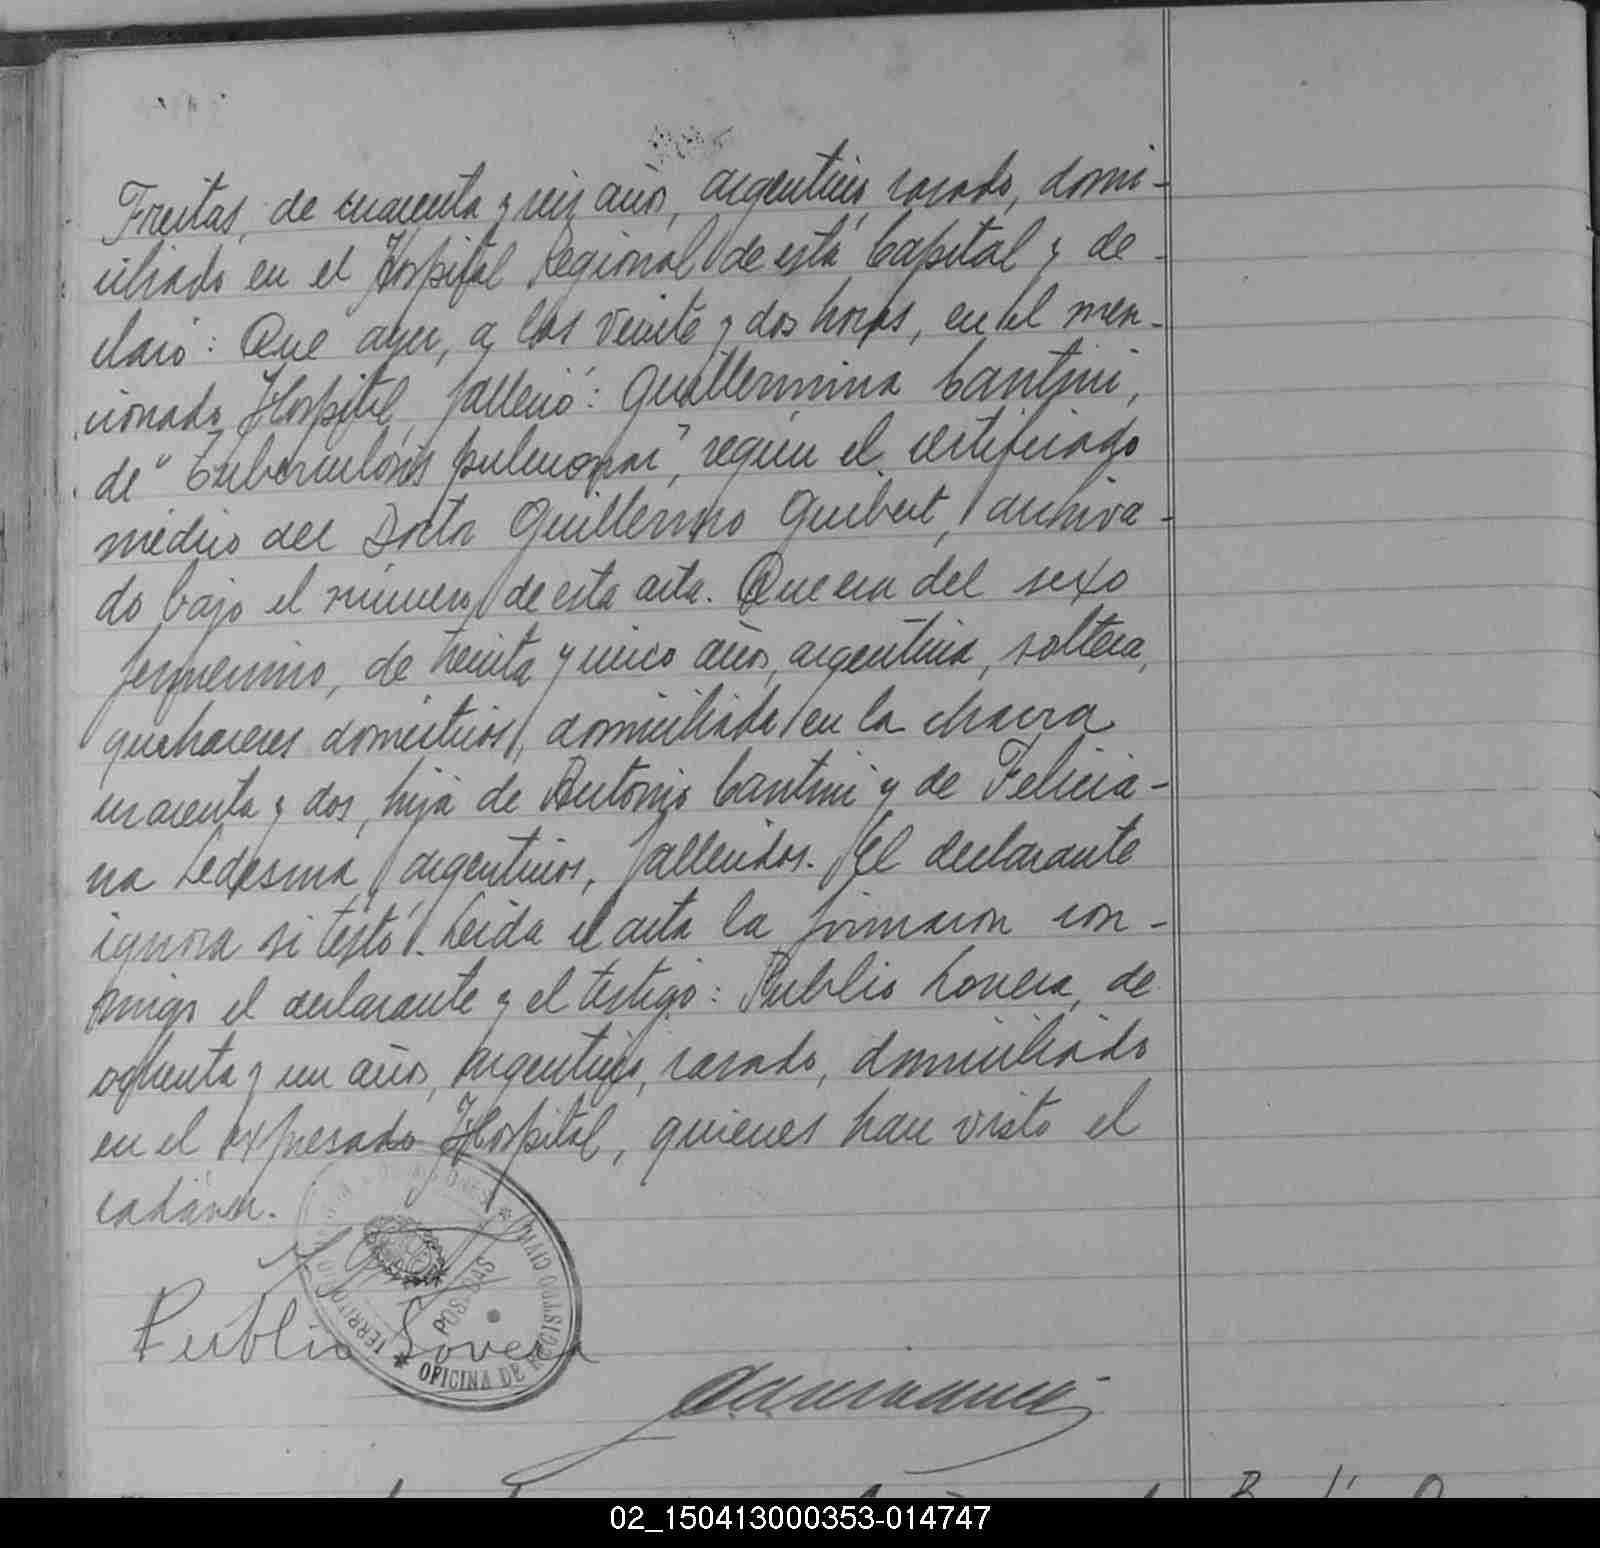 Freitas, de cuarenta y seis años, argentino, casado, domi-
ciliado en el Hospital Regional de esta Capital y de-
claró: Que ayer, a las veinte y dos horas, en el men-
cionado Hospital, falleció: Guillermina Cantini,
de "Tuberculosis pulmonar", según el certificado
médico del Doctor Guillermo Guibert, archiva-
do bajo el número de esta acta. Que era del sexo
femenino, de treinta y cinco años, argentina, soltera,
quehaceres domésticos, domiciliada en la chacra
cuarenta y dos, hija de Antonio Cantini y de Felicia-
na Ledesma, argentinos, fallecidos. El declarante
ignora si testó. Leída el acta la firmaron con-
migo el declarante y el testigo: Publio Lovera, de
ochenta y un años, argentino, casado, domiciliado
en el expresado Hospital, quienes han visto el
cadáver.
Publio Lovera
TERRITORIO MISIONES * OFICINA DE REGISTRO CIVIL *
POSADAS
02_150413000353-014747